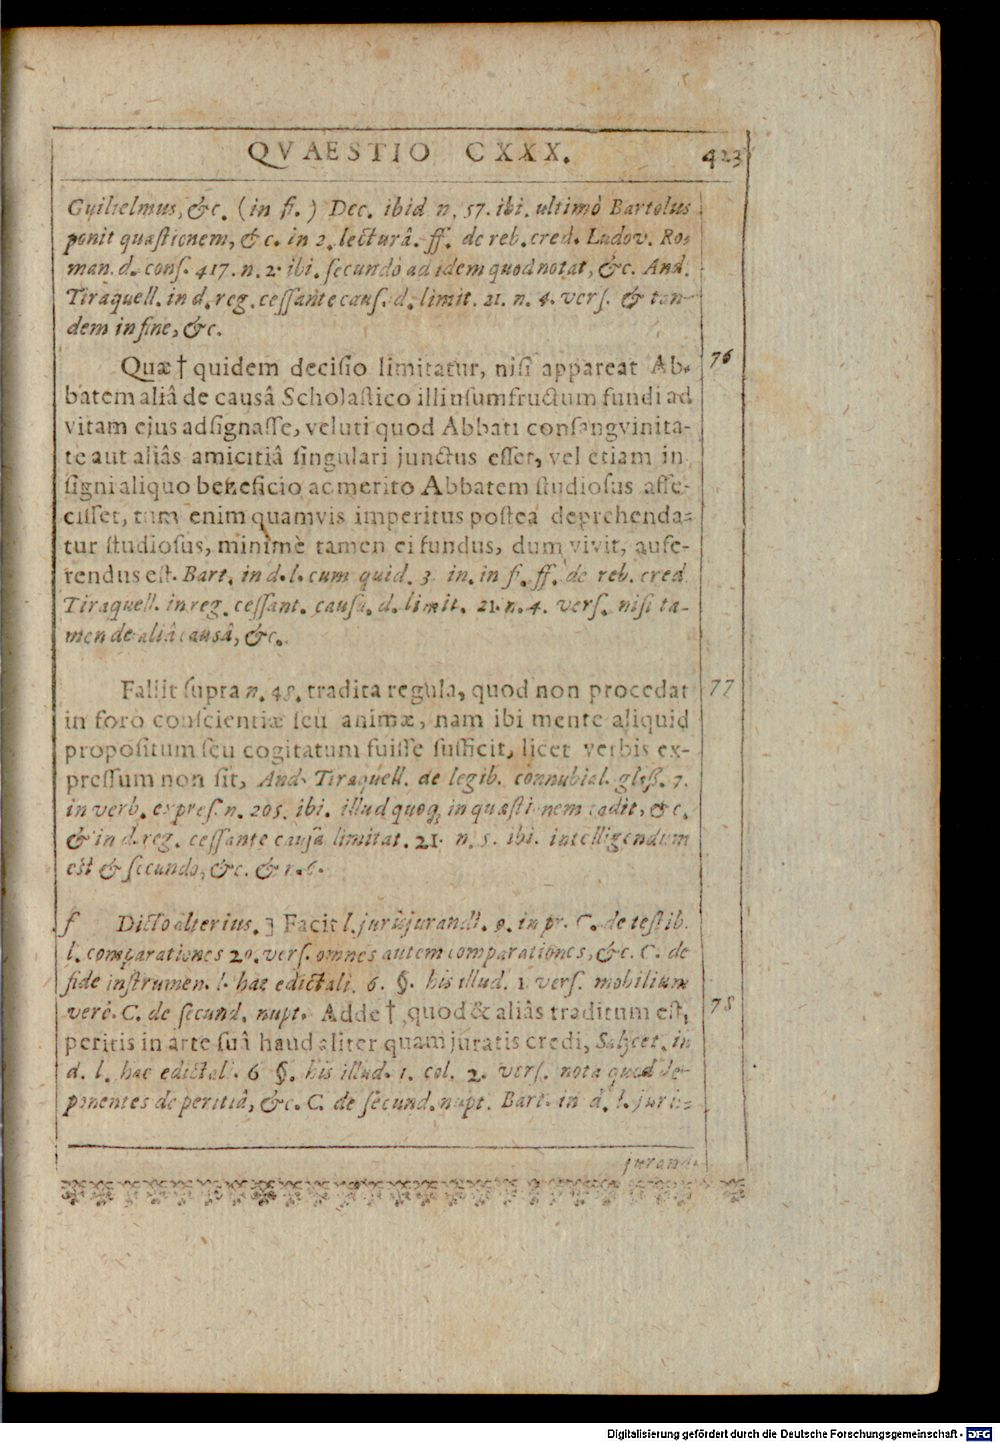 QVAESTIO CXXX. 423
Guilielmus, &c. (in fi.) Dec. ibid n. 57. ibi. ultimò Bartolus
ponit quæstionem, & c. in 2. lecturâ. ff. de reb. cred. Ludov. Ro-
man. d. cons. 417. n. 2. ibi. secundò ad idem quod notat, &c. And.
Tiraquell. in d. reg. cessante caus. d. limit. 21. n. 4. vers. & tan-
dem in fine, &c.
Quæ † quidem decisio limitatur, nisi appareat Ab- 76
batem aliâ de causâ Scholastico illi usumfructum fundi ad
vitam ejus adsignasse, veluti quod Abbati consangvinita-
te aut aliâs amicitiâ singulari junctus esset, vel etiam in
signi aliquo beneficio ac merito Abbatem studiosus affe-
cisset, tum enim quamvis imperitus postea deprehenda-
tur studiosus, minimè tamen ei fundus, dum vivit, aufe-
rendus est. Bart. in d. l. cum quid. 3. in. in fi. ff. de reb. cred
Tiraquell. in reg. cessant. causâ. d. limit. 21. n. 4. vers. nisi ta-
men de aliâ causâ, &c.
Fallit supra n. 45. tradita regula, quod non procedat 77
in foro conscientiæ seu animæ, nam ibi mente aliquid
propositum seu cogitatum fuisse sufficit, licet verbis ex-
pressum non sit, And. Tiraquell. de legib. connubial. gloß. 7.
in verb. expres. n. 205. ibi. illud quoq; in quæstionem cadit, &c.
& in d. reg. cessante causâ limitat. 21. n. 5. ibi. intelligendum
est & secundo, &c. & n. 6.
f Dicto alterius.] Facit l. jurisjurandi. 9. in pr. C. de testib.
l. comparationes 20. vers. omnes autem comparationes, &c. C. de
fide instrumen. l. hac edictali. 6. §. his illud. 1. vers. mobilium
verè. C. de secund. nupt. Adde † quod & aliâs traditum est, 78
peritis in arte suâ haud aliter quam juratis credi, Salycet. in
d. l. hac edictal. 6 §. his illud. 1. col. 2. vers. nota quod de-
ponentes de peritiâ, &c. C. de secund. nupt. Bart. in d. l. juris-
jurandi.
Digitalisierung gefördert durch die Deutsche Forschungsgemeinschaft - DFG